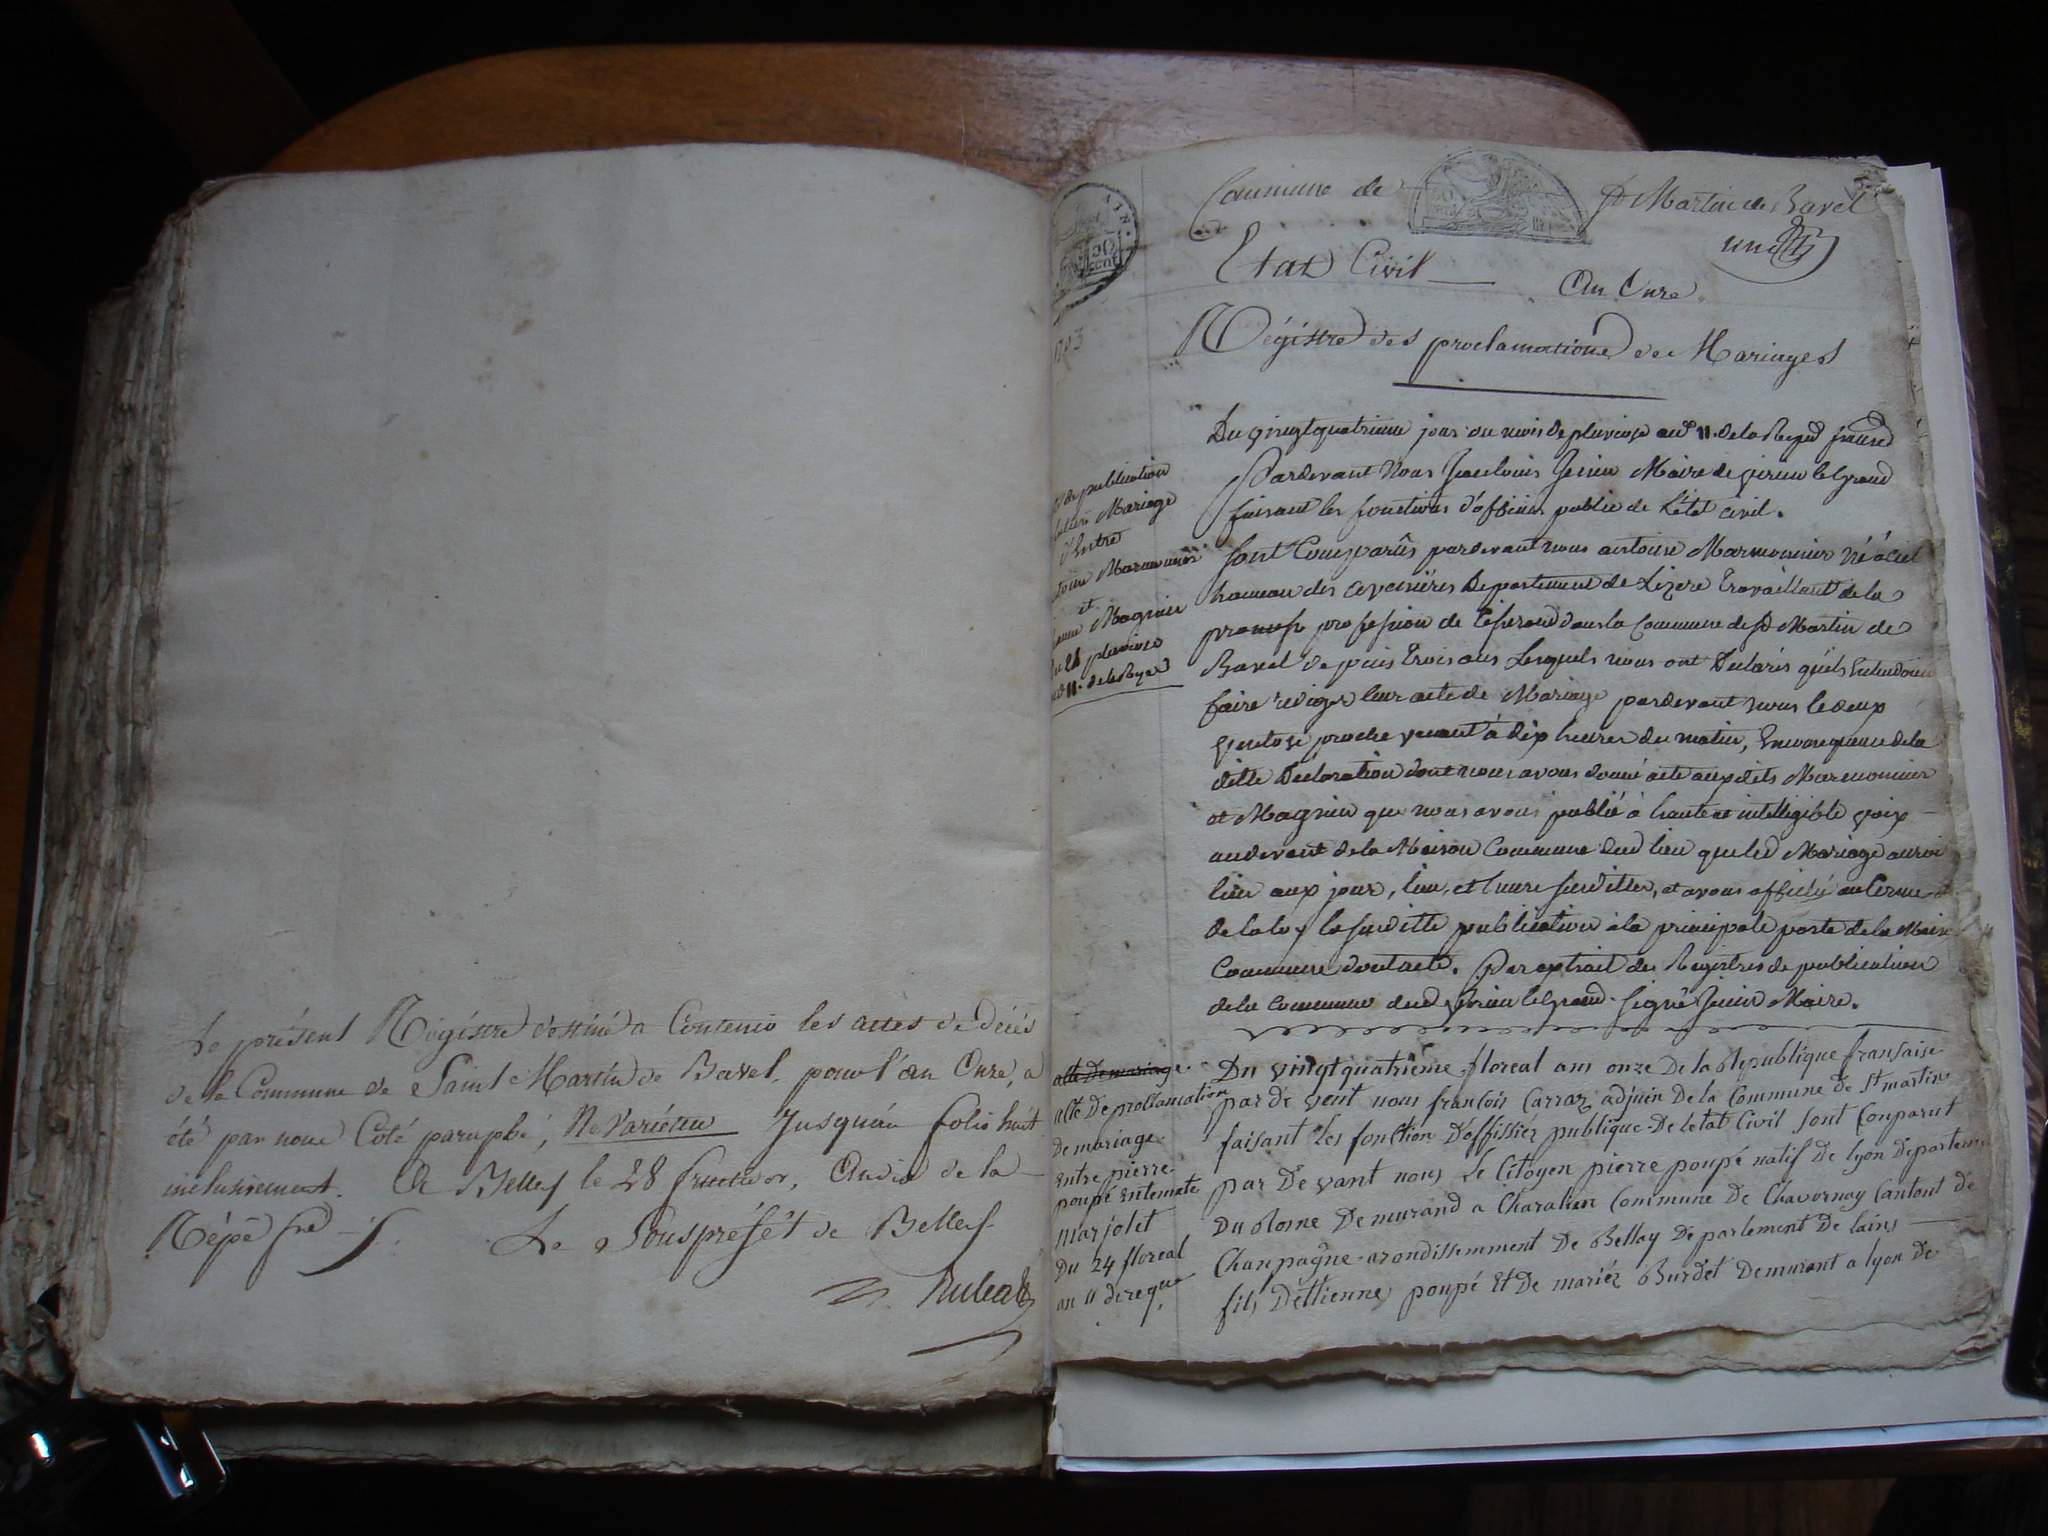 Le présent Régistre destiné a Contenir les actes de Décés
de la Commune de Saint Martin de Bavel, pour l'an Onze, a
été par nous Coté paraphé, Ne Varietur Jusqu'au folio huit
inclusivement. A Belley le 28 fructidor, An dix de la
Répe fse
Le Souspréfét de Belley
Commune de St Martin de Bavel
Etat Civil
An Onze
Régistre des proclamations de Mariages
1803
de publication
Mariage
d'Entre
Marmonier
et
Magnin
pluviose
11. de la Rep
Du vingt quatrieme jour du mois de pluviose an 11. de la Repud franse
Pardevant Nous Jean louis Maire de virieu le Grand
faisant les fonctions d'officier public de L'etat civil.
sont Comparûs pardevant nous antoine Marmonier
hameau des aveniéres Departement de Lizere travaillant de la
profession de dans la Commune de St Martin de
Bavel depuis trois ans Lesquels nous ont Declarés qu'ils Entendoient
faire rediger leur acte de Mariage pardevant nous le deux
ventose proche venant à dix heures du matin, En consequence de la
ditte Declaration dont nous avons donné acte auxdits Marmonier
et Magnin que nous avons publié à haute et intelligible voix
audevant de la Maison Commune dud lieu que led Mariage auroit
lieu aux jour, lieu, et heure susdittes, et avons affiché au terme
de la loy la susditte publication à la principale porte de la Maison
Commune dont acte. Par extrait des Registres de publication
de la commune dud virieu le Grand. signé Maire.
acte De mariage
acte De proclamation
De mariage
Entre pierre
poupé
marjolet
Du 24 floreal
an 11
Du vingt quatriéme floreal ans onze De la Republique française
par De vent nous françois Carraz adjuin De la Commune de St martin
faisant les fonction D'offissier publique De letat Civil sont Conparut
par De vant nous Le Citoyen pierre poupé natif De lyon Departement
Du Rosne Demurand a Charalien Commune De Chavornay Cantont De
Chanpagne arondissemment De Bellay Departement De lains
fils Dettienne poupé Et De mariez Burdet Demurant a lyon De